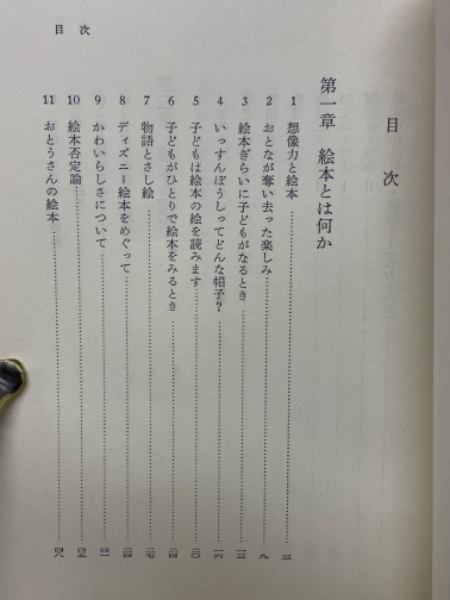 目次
第一章 絵本とは何か
1 想像力と絵本
2 おとなが奪い去った楽しみ 九
3 絵本ぎらいに子どもがなるとき 一三
4 いっすんぼうしってどんな帽子? 一六
5 子どもは絵本の絵を読みます 二〇
6 子どもがひとりで絵本をみるとき 二四
7 物語とさし絵 二七
8 ディズニー絵本をめぐって
9 かわいらしさについて
10 絵本否定論
11 おとうさんの絵本
目次